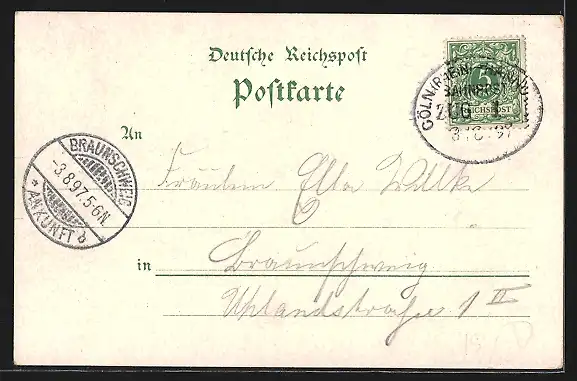 Deutsche Reichspost
Postkarte
5
REICHSPOST
CÖLN (RHEIN)
BAHNPOST
ZUG 1
3 8 97
An
BRAUNSCHWEIG
-3.8.97.5-6N.
* ANKUNFT b
Fräulein Ella Wilke
in Braunschweig
Uhlandstraße 1 II